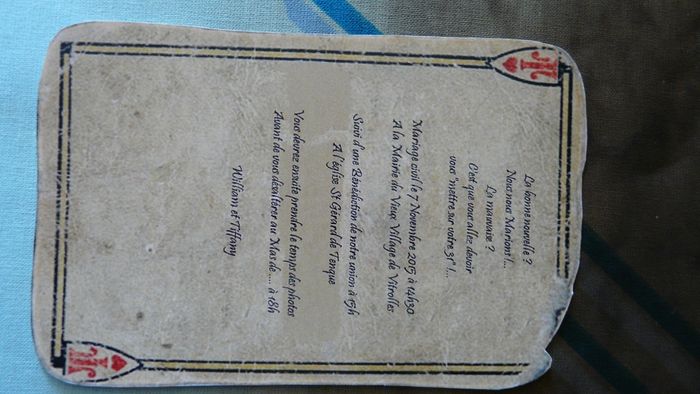 La bonne nouvelle ?
Nous nous Marions !..
La mauvaise ?
C'est que vous allez devoir
vous "mettre sur votre 31" !..
Mariage civil le 7 Novembre 2015 à 14h30
A la Mairie du Vieux Village de Vitrolles
Suivi d'une Bénédiction de notre union à 15h
A l'église St Gérard de Tenque
Vous devrez ensuite prendre le temps des photos
Avant de vous désaltérer au Mas de .... à 18h
William et Tiffany